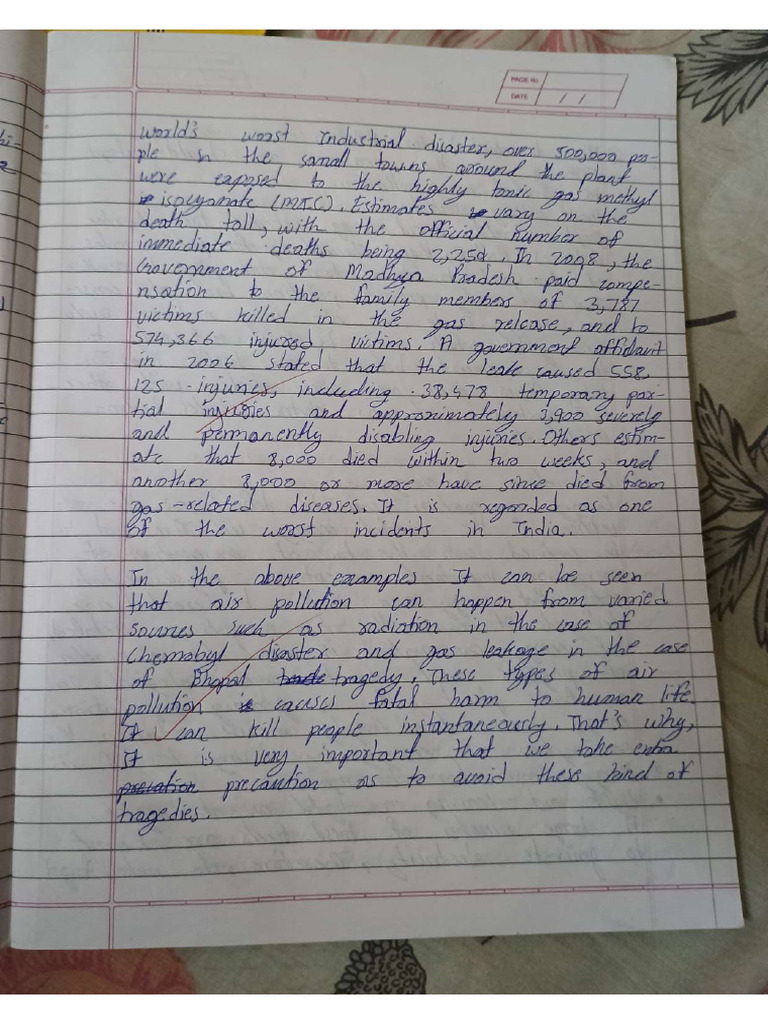 PAGE No.
DATE / /
World's worst Industrial disaster, over 500,000 peo-
ple in the small towns around the plant
were exposed to the highly toxic gas methyl
isocyanate (MIC). Estimates vary on the
death toll, with the official number of
immediate deaths being 2,259. In 2008, the
Government of Madhya Pradesh paid compe-
nsation to the family members of 3,787
victims killed in the gas release, and to
574,366 injured victims. A government affidavit
in 2006 stated that the leak caused 558,
125 injuries, including 38,478 temporary par-
tial injuries and approximately 3,900 severely
and permanently disabling injuries. Others estim-
ate that 8,000 died within two weeks, and
another 8,000 or more have since died from
gas-related diseases. It is regarded as one
of the worst incidents in India.
In the above examples It can be seen
that air pollution can happen from varied
sources such as radiation in the case of
Chernobyl disaster and gas leakage in the case
of Bhopal tragedy. These types of air
pollution causes fatal harm to human life.
It can kill people instantaneously. That's why,
It is very important that we take extra
precaution as to avoid these kind of
tragedies.